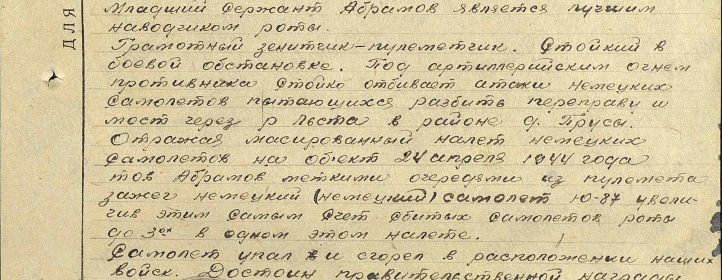 ДЛЯ
Младший сержант Абрамов является лучшим
наводчиком роты.
Грамотный зенитчик-пулеметчик. Стойкий в
боевой обстановке. Под артиллерийским огнем
противника стойко отбивает атаки немецких
самолетов пытающихся разбить переправу и
мост через р Льста в районе д. Трусы.
Отражая масированный налет немецких
самолетов на обїект 24 апреля 1944 года
тов Абрамов меткими очередями из пулемета
зажег немецкий (немецкий) самолет Ю-87 увели-
чив этим самым счет сбитых самолетов роты
до 3ех в одном этом налете.
Самолет упал и сгорел в расположении наших
войск. Достоин правительственной награды